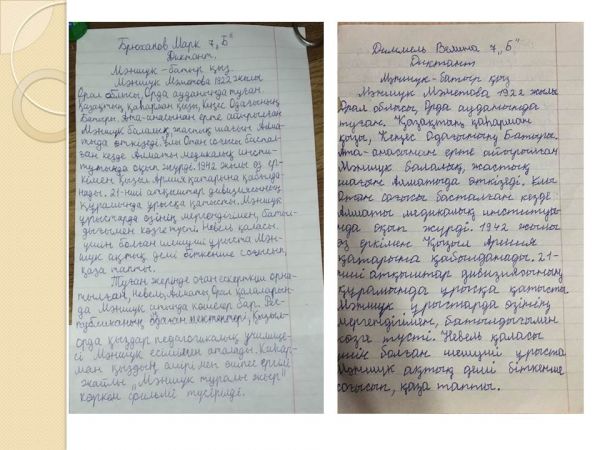 Брюханов Марк 7 „Б"
Диктант.
Мәншүк - батыр қыз.
Мәншүк Мәметова 1922 жылы
Орал облысы, Орда ауданында туған.
Қазақтың қаһарман қызы, Кеңес Одағының
Батыры. Ата-анасынан ерте айырылған
Мәншүк балалық, жастық шағын Алма-
тыда өткізеді. Ұлы Отан соғысы бастал-
ған кезде Алматы медикалық инсти-
тутында оқып жүрді. 1942 жылы өз ер-
кімен Қызыл Армия қатарына қабылда-
нады. 21-ші атқыштар дивизиясының
құрамында ұрысқа қатысты. Мәншүк
ұрыстарда өзінің мергендігімен, баты-
лдығымен көзге түсті. Невель қаласы
үшін болған шешуші ұрыста Мән-
шүк ақтық демі біткенше соғысып,
қаза тапты.
Туған жерінде оған ескерткіш орна-
тылған, Невель, Алматы, Орал қалаларын-
да Мәншүк атында көшелер бар. Рес-
публиканың бірқатар мектептері, Қызыл-
орда қыздар педагогикалық училище-
сі Мәншүк есімімен аталады. Қаһар-
ман қыздың өмірі мен өшпес ерлігі
жайлы "Мәншүк туралы жыр"
көркем фильмі түсірілді.
Диммель Велина 7 „Б"
Диктант
Мәншүк - батыр қыз
Мәншүк Мәметова 1922 жылы
Орал облысы, Орда ауданында
туған. Қазақтың қаһарман
қызы, Кеңес Одағының Батыры.
Ата-анасынан ерте айырылған
Мәншүк балалық, жастық
шағын Алматыда өткізеді. Ұлы
Отан соғысы басталған кезде
Алматы медикалық институты-
нда оқып жүрді. 1942 жылы
өз еркімен Қызыл Армия
қатарына қабылданады. 21-
ші атқыштар дивизиясының
құрамында ұрысқа қатысты.
Мәншүк ұрыстарда өзінің
мергендігімен, батылдығымен
көзге түсті. Невель қаласы
үшін болған шешуші ұрыста
Мәншүк ақтық демі біткенше
соғысып, қаза тапты.